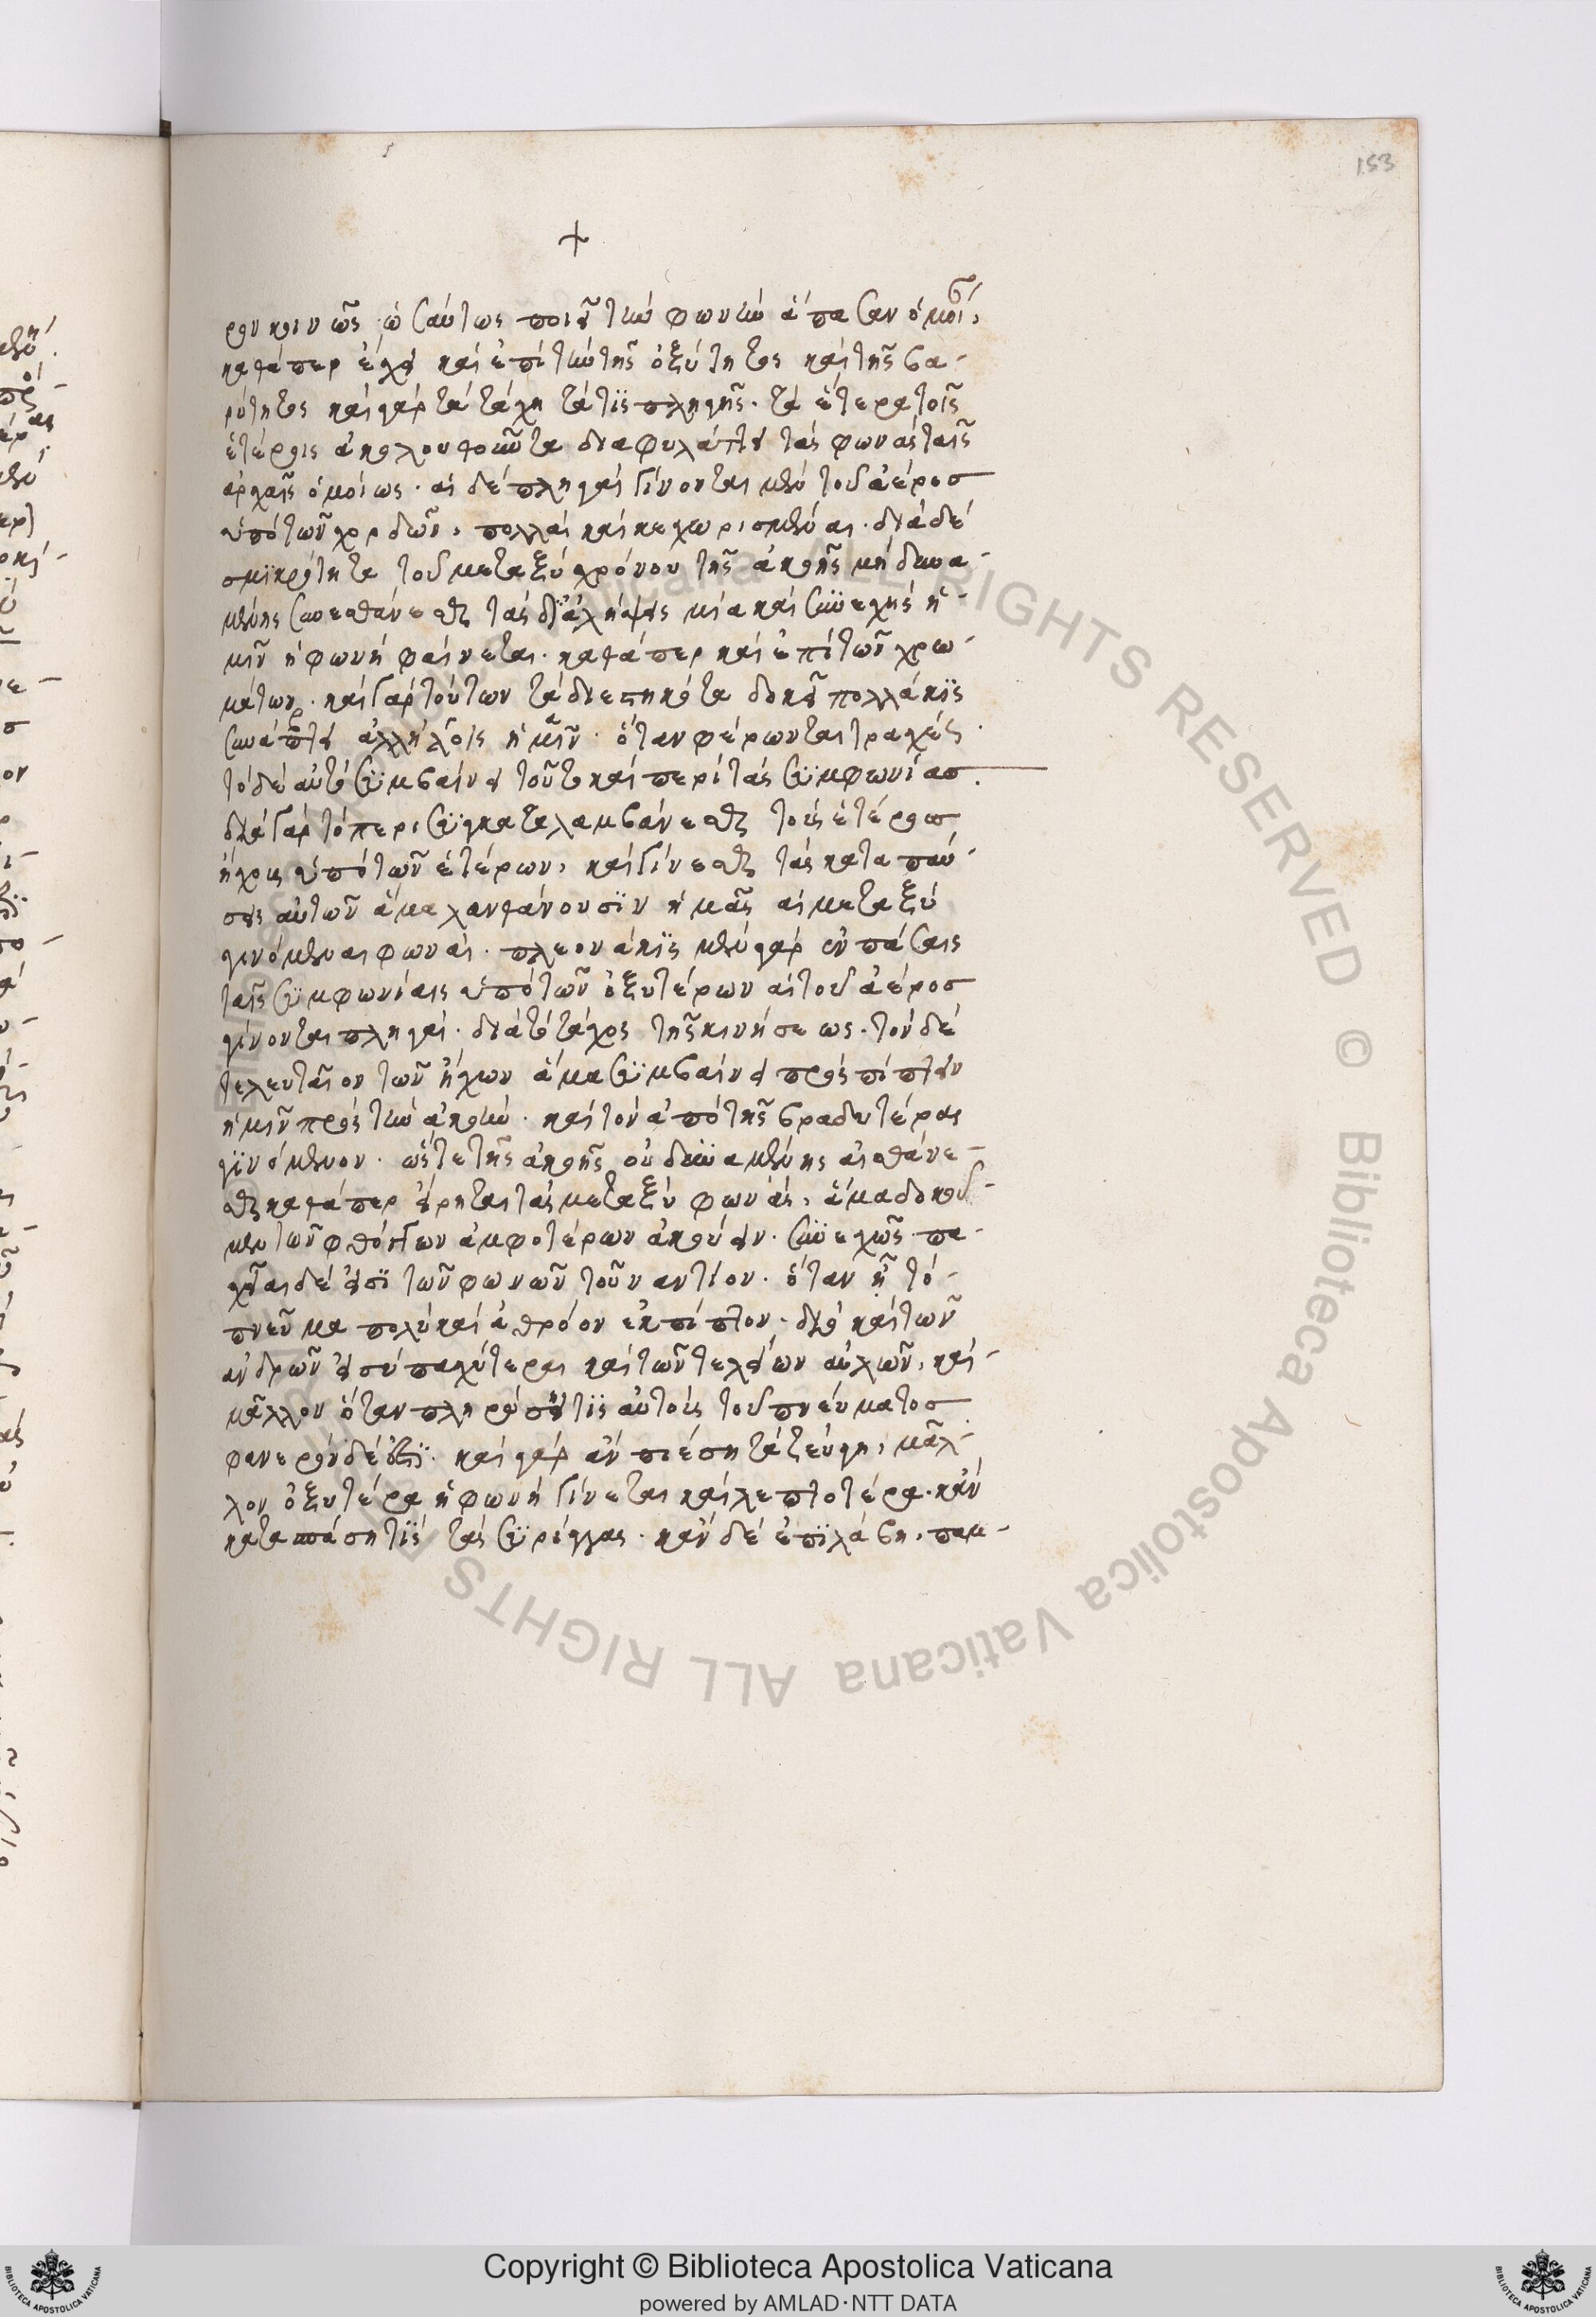 153
ρον κοινῶς ὡσαύτως ποιεῖ τὴν φωνὴν ἅπασαν ὁμοί,
καθάπερ ἔχει καὶ ἐπὶ τὴν τῆς ὀξύτητος καὶ τῆς βα-
ρύτητος καὶ γὰρ τὰ τάχη τὰ τῆς πληγῆς. τὰ ἕτερα τοῖς
ἑτέροις ἀκολουθοῦντα διαφυλάττει τὰς φωνὰς ταῖς
ἀρχαῖς ὁμοίως. αἱ δὲ πληγαὶ γίνονται μὲν τοῦ ἀέρος
ὑπὸ τῶν χορδῶν, πολλαὶ καὶ κεχωρισμέναι. διὰ δὲ
σμικρότητα τοῦ μεταξὺ χρόνου τῆς ἀκοῆς μὴ δυνα-
μένης συνεσθάνεσθαι τὰς διαλήψεις μία καὶ συνεχὴς ἡ-
μῖν ἡ φωνὴ φαίνεται. καθάπερ καὶ ἐπὶ τῶν χρω-
μάτων. καὶ γὰρ τούτων τὰ διεστηκότα δοκεῖ πολλάκις
συνάπτειν ἀλλήλοις ἡμῖν. ὅταν φέρωνται τραχέως.
τὸ δὲ αὐτὸ συμβαίνει τοῦτο καὶ περὶ τὰς συμφωνίας.
διὰ γὰρ τὸ περισυγκαταλαμβάνεσθαι τοὺς ἑτέρους
ἤχους ὑπὸ τῶν ἑτέρων, καὶ γίνεσθαι τὰς καταπαύ-
σεις αὐτῶν ἅμα λανθάνουσιν ἡμᾶς αἱ μεταξὺ
γινόμεναι φωναί. πλεονάκις μὲν γὰρ ἐν πάσαις
ταῖς συμφωνίαις ὑπὸ τῶν ὀξυτέρων αἱ τοῦ ἀέρος
γίνονται πληγαί. διὰ τὸ τάχος τῆς κινήσεως. τὸν δὲ
τελευταῖον τῶν ἤχων ἅμα συμβαίνει προσπίπτειν
ἡμῖν πρὸς τὴν ἀκοὴν. καὶ τὸν ἀπὸ τῆς βραδυτέρας
γινόμενον. ὥστε τῆς ἀκοῆς οὐ δυναμένης αἰσθάνε-
σθαι καθάπερ εἴρηται τὰς μεταξὺ φωνάς, ἅμα δοκοῦ-
μεν τῶν φθόγγων ἀμφοτέρων ἀκούειν. συνεχῶς. πα-
χεῖαι δέ εἰσὶ τῶν φωνῶν τοῦναντίον. ὅταν ᾖ τὸ-
πνεῦμα πολὺ καὶ ἀθρόον ἐκπίπτον. διὸ καὶ τῶν
ἀνδρῶν εἰσὶ παχύτεραι καὶ τῶν τελείων αὐλῶν, καὶ-
μᾶλλον ὅταν πληρώσῃ τὶς αὐτοὺς τοῦ πνεύματος
φανερὸν δέ ἐστϊ. καὶ γὰρ ἂν πιέσῃ τὰ ζεύγη, μᾶλ-
λον ὀξυτέρα ἡ φωνὴ γίνεται καὶ λεπτοτέρα. κἂν
κατασπάσῃ τὶς τὰς σύριγγας. κἂν δὲ ἐπιλάβῃ, παμ-
Copyright © Biblioteca Apostolica Vaticana
powered by AMLAD·NTT DATA